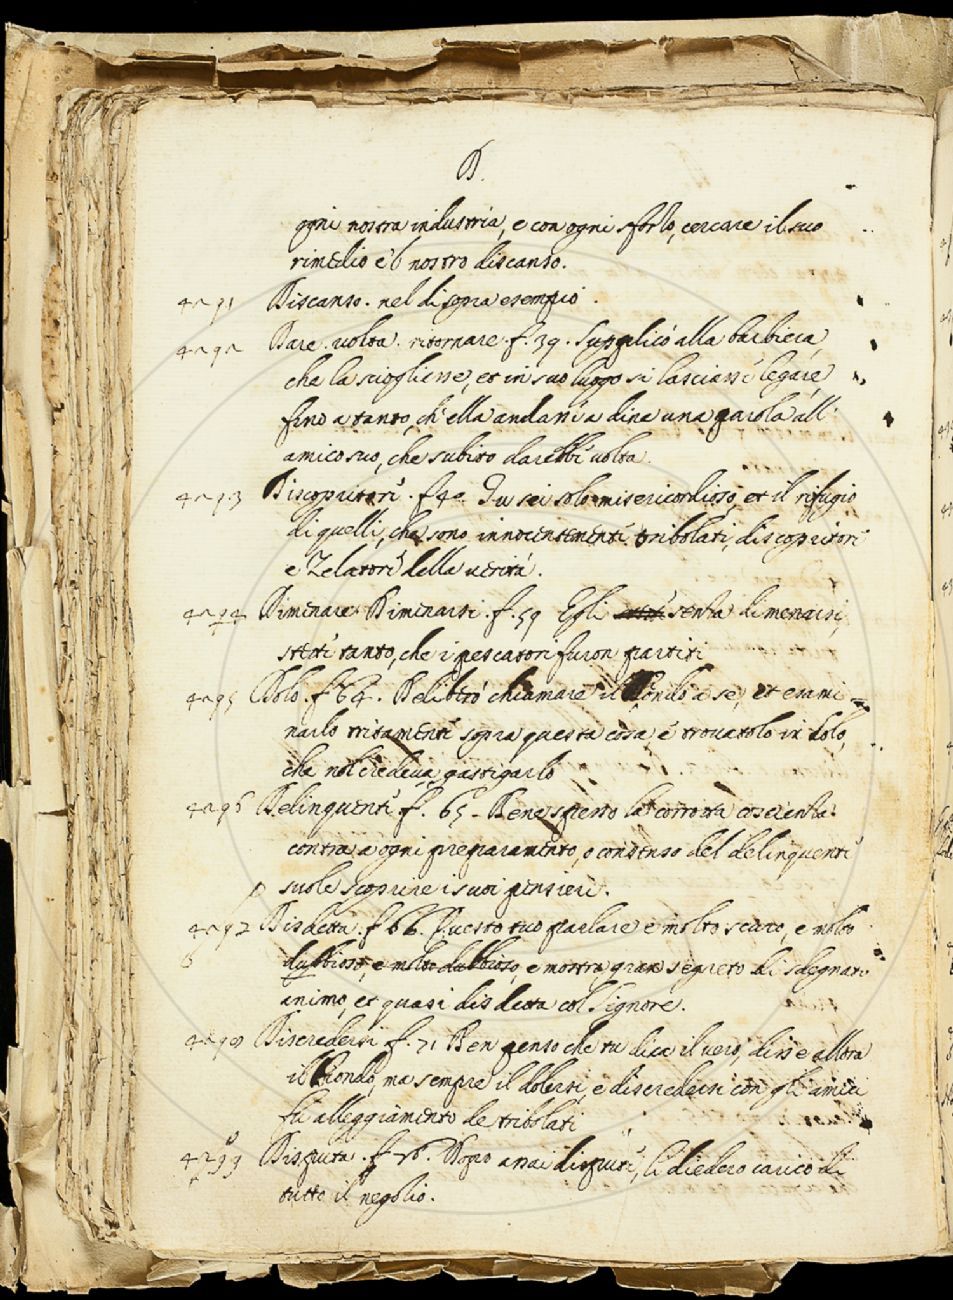 D.
ogni nostra industria, e con ogni sforzo, cercare il suo
rimedio è 'l nostro discanso.
4291 Discanso. nel di sopra esempio.
4292 Dare volta. ritornare. f. 39. Supplicò alla barbiera,
che la sciogliesse, et in suo luogo si lasciassi legare,
fino a tanto, ch' ella andassi a dire una parola all'
amico suo, che subito darebbe volta.
4293 Discopritori. f. 40. Tu sei solo misericordioso, et il rifugio
di quelli, che sono innocentementi tribolati, discopritori
e Zelatori della verità.
4294 Dimenare Dimenarsi. f. 59 Egli senza dimenarsi,
stette tanto, che i pescatori furon partiti
4295 Dolo. f. 64. Deliberò chiamare il Biondo a se, et esami=
narlo tritamenti sopra questa cosa e trovatolo in dolo,
che nol credeva gastigarlo
4296 Delinquenti f. 65. Bene spesso la corrotta coscienza
contra a ogni preparamento, o consenso del delinquenti
suole scoprire i suoi pensieri.
4297 Disdetta. f. 66. Questo tuo parlare è molto scuro, e molto
dubbioso, e molto dubbioso, e mostra gran segreto di sdegnato
animo, et quasi disdetta col Signore.
4298 Discredersi f. 71 Ben penso che tu dica il vero, disse allora
il Biondo, ma sempre il dolersi, e discredersi con gli amici
fu alleggiamento de tribolati
4299 Disputa. f. 76. Dopo assai dispute, li diedero carico di
tutto il negozio.